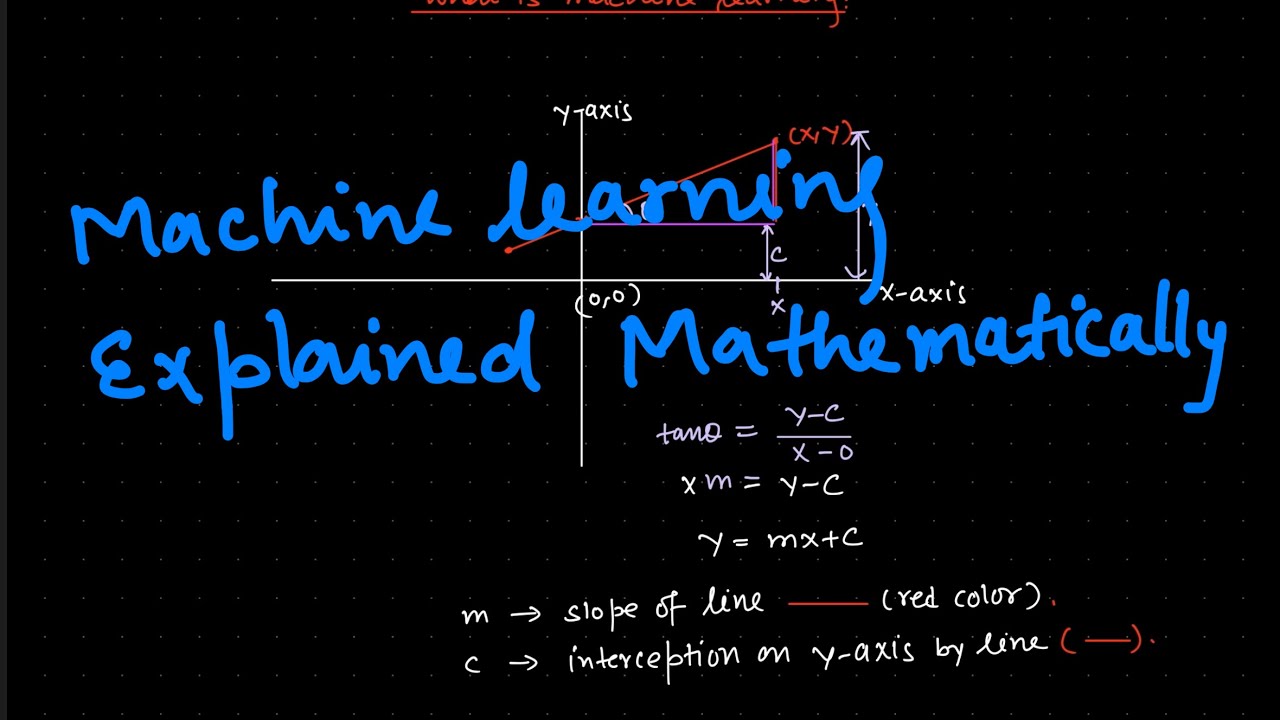 What is machine learning?
y-axis
(x,y)
Machine learning
c
(0,0)
x
x-axis
Explained Mathematically
tanθ = y-c / x-0
x m = y-c
y = mx+c
m → slope of line —— (red color).
c → interception on y-axis by line ( —— ).